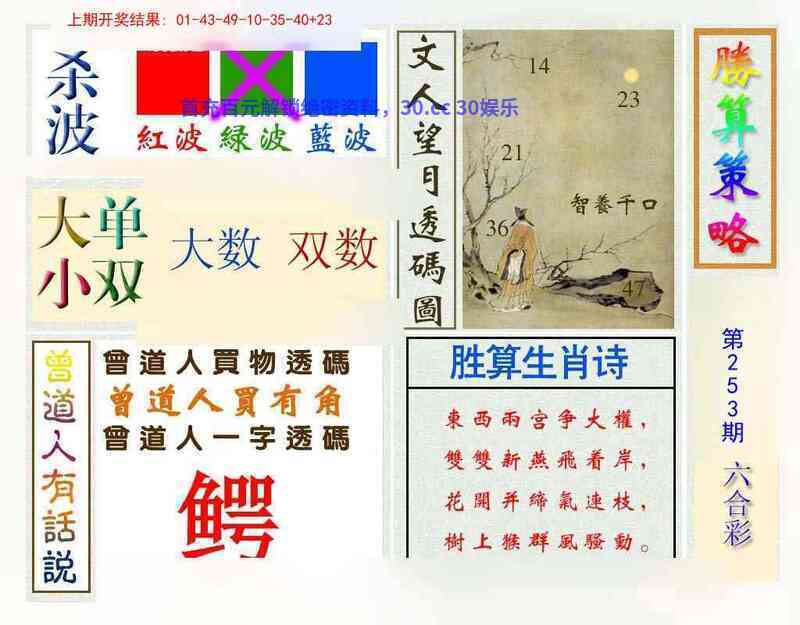 上期开奖结果：01-43-49-10-35-40+23
杀波
紅波 緑波 藍波
首充百元解锁绝密资料，30.cc 30娱乐
大单
小双
大数 双数
文人望月透碼圖
14
23
21
智養千口
36
47
勝算策略
曾道人有話説
曾道人買物透碼
曾道人買有角
曾道人一字透碼
鳄
胜算生肖诗
東西兩宫争大權，
雙雙新燕飛着岸，
花開并締氣連枝，
樹上猴群風騷動。
第253期
六合彩